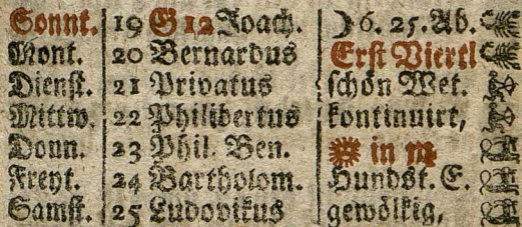 Sonnt. 19 G 12 Joach. ☽ 6. 25. Ab.
Mont. 20 Bernardus Erst Viertl
Dienst. 21 Privatus schön Wet.
Mittw. 22 Philibertus kontinuirt,
Donn. 23 Phil. Ben. ☀ in ♍
Freyt. 24 Bartholom. Hundst. E.
Samst. 25 Ludovikus gewölkig,